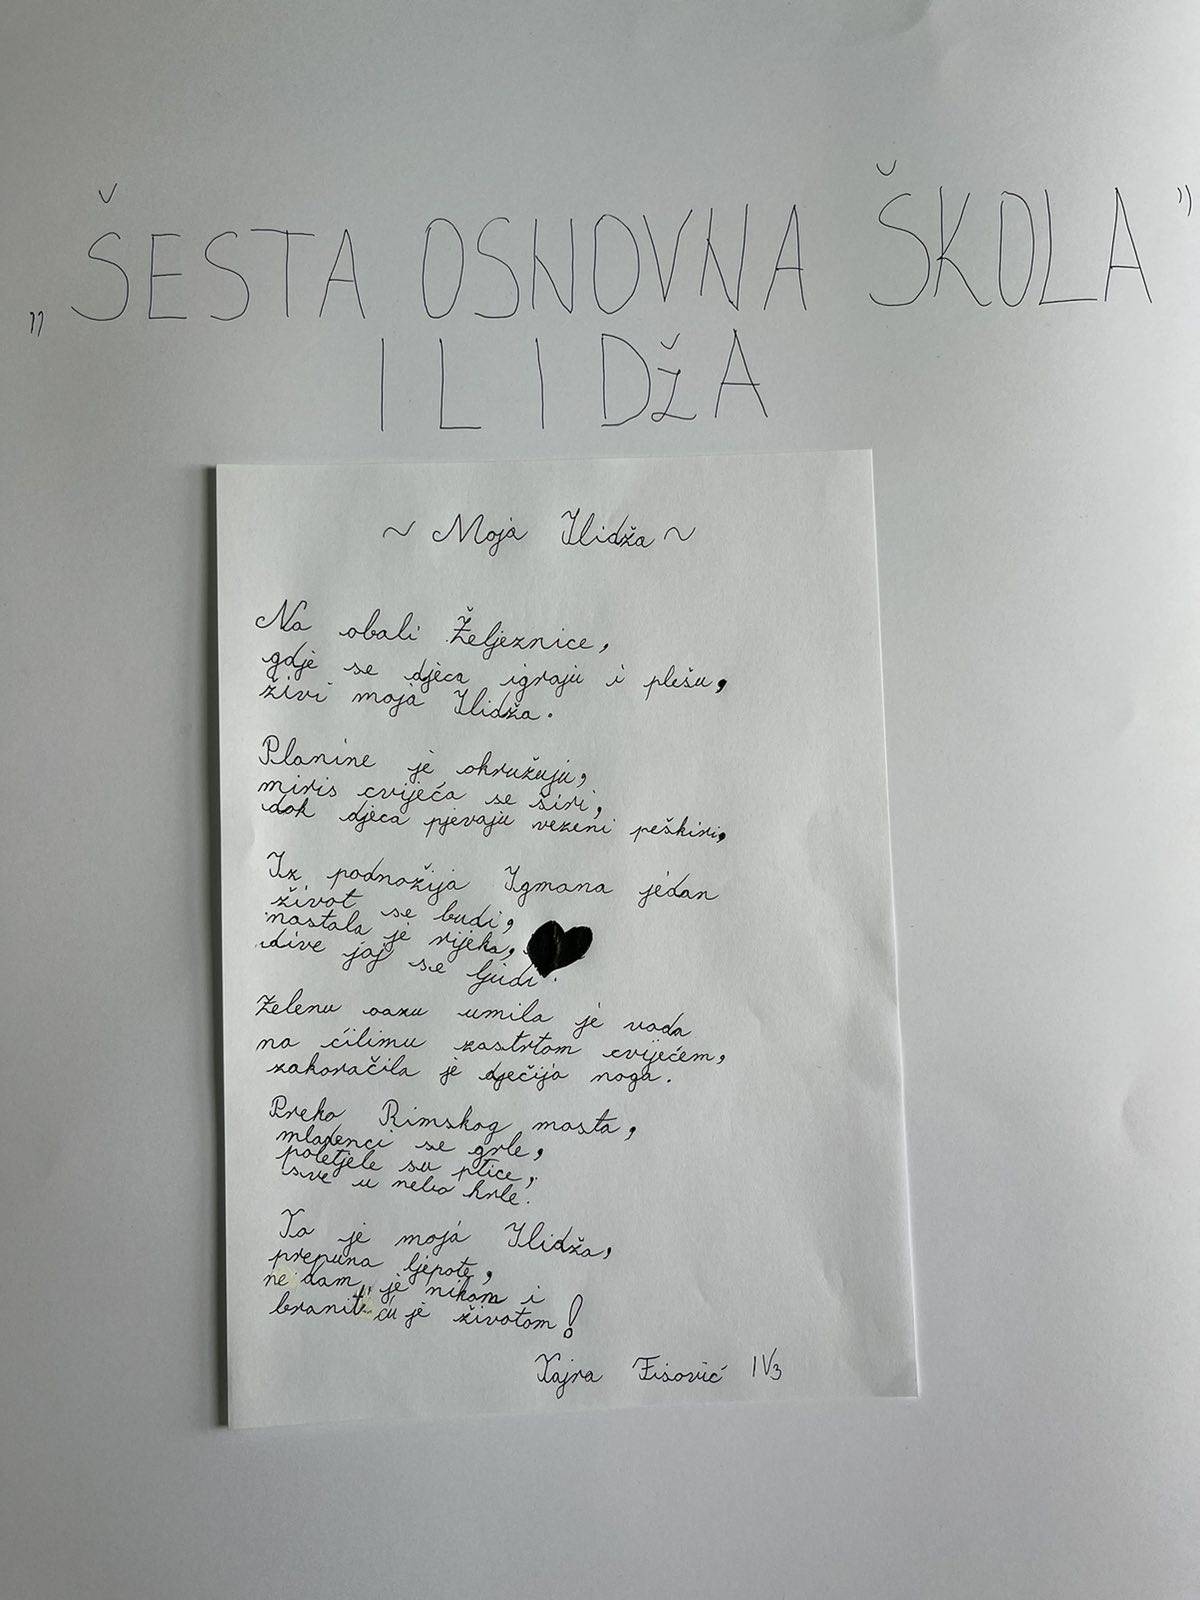 „ŠESTA OSNOVNA ŠKOLA"
ILIDžA
~ Moja Ilidža ~
Na obali Željeznice,
gdje se djeca igraju i plešu,
živi moja Ilidža.
Planine je okružuju,
miris cvijeća se širi,
dok djeca pjevaju vezeni peškiri,
Iz podnožija Igmana jedan
život se budi,
nastala je rijeka,
dive joj se ljudi.
Zelenu oazu umila je voda
na ćilimu zastrtom cvijećem,
zakoračila je dječija noga.
Preko Rimskog mosta,
mladenci se grle,
poletjele su ptice,
sve u nebo hrle.
To je moja Ilidža,
prepuna ljepote,
ne dam je nikom i
branit ću je životom!
IV3